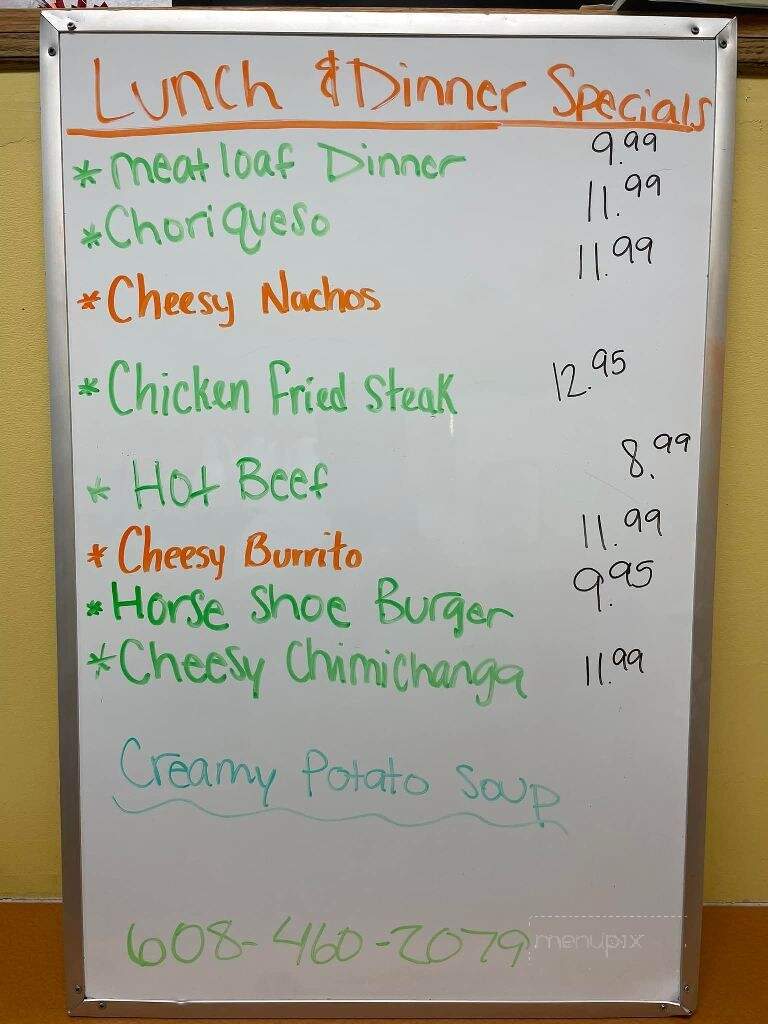 Lunch & Dinner Specials
* meat loaf Dinner 9.99
* Choriqueso 11.99
* Cheesy Nachos 11.99
* Chicken Fried Steak 12.95
* Hot Beef 8.99
* Cheesy Burrito 11.99
* Horse Shoe Burger 9.95
* Cheesy Chimichanga 11.99
Creamy Potato Soup
608-460-2079 menupix